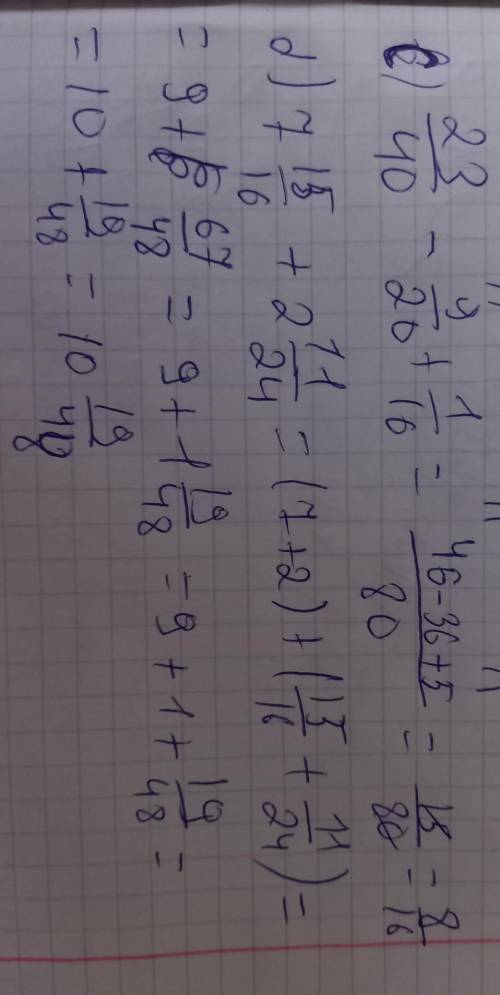 c) 23/40 - 9/20 + 1/16 = (46-36+5)/80 = 15/80 = 8/16
d) 7 15/16 + 2 11/24 = (7+2) + (15/16 + 11/24) =
= 9 + 67/48 = 9 + 1 19/48 = 9 + 1 + 19/48 =
= 10 + 19/48 = 10 19/48